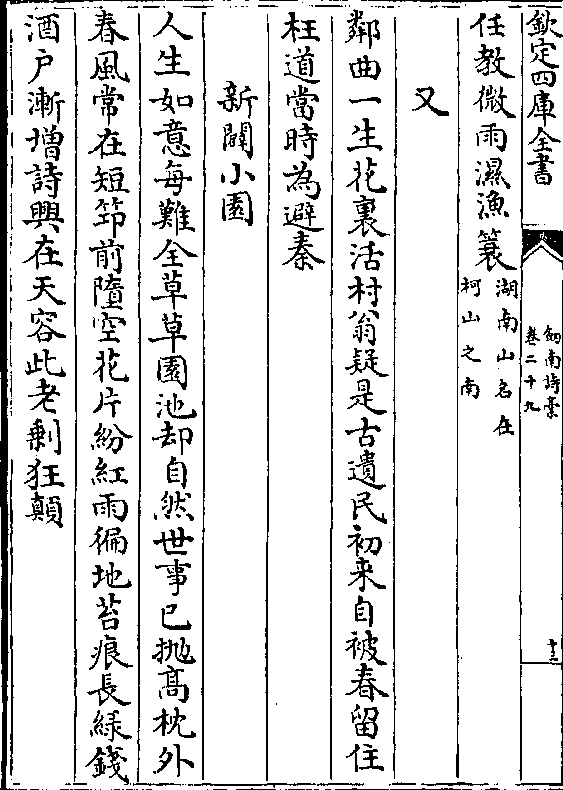 欽定四庫全書
劍南詩稾
卷二十九
十三
任教微雨濕漁蓑湖南山名在
柯山之南
又
鄰曲一生花裏活村翁疑是古遺民初来自被春留住
枉道當時為避秦
新闢小園
人生如意每難全草草園池却自然世事已抛髙枕外
春風常在短笻前墮空花片紛紅雨徧地苔痕長綠錢
酒户漸增詩興在天容此老剩狂顛